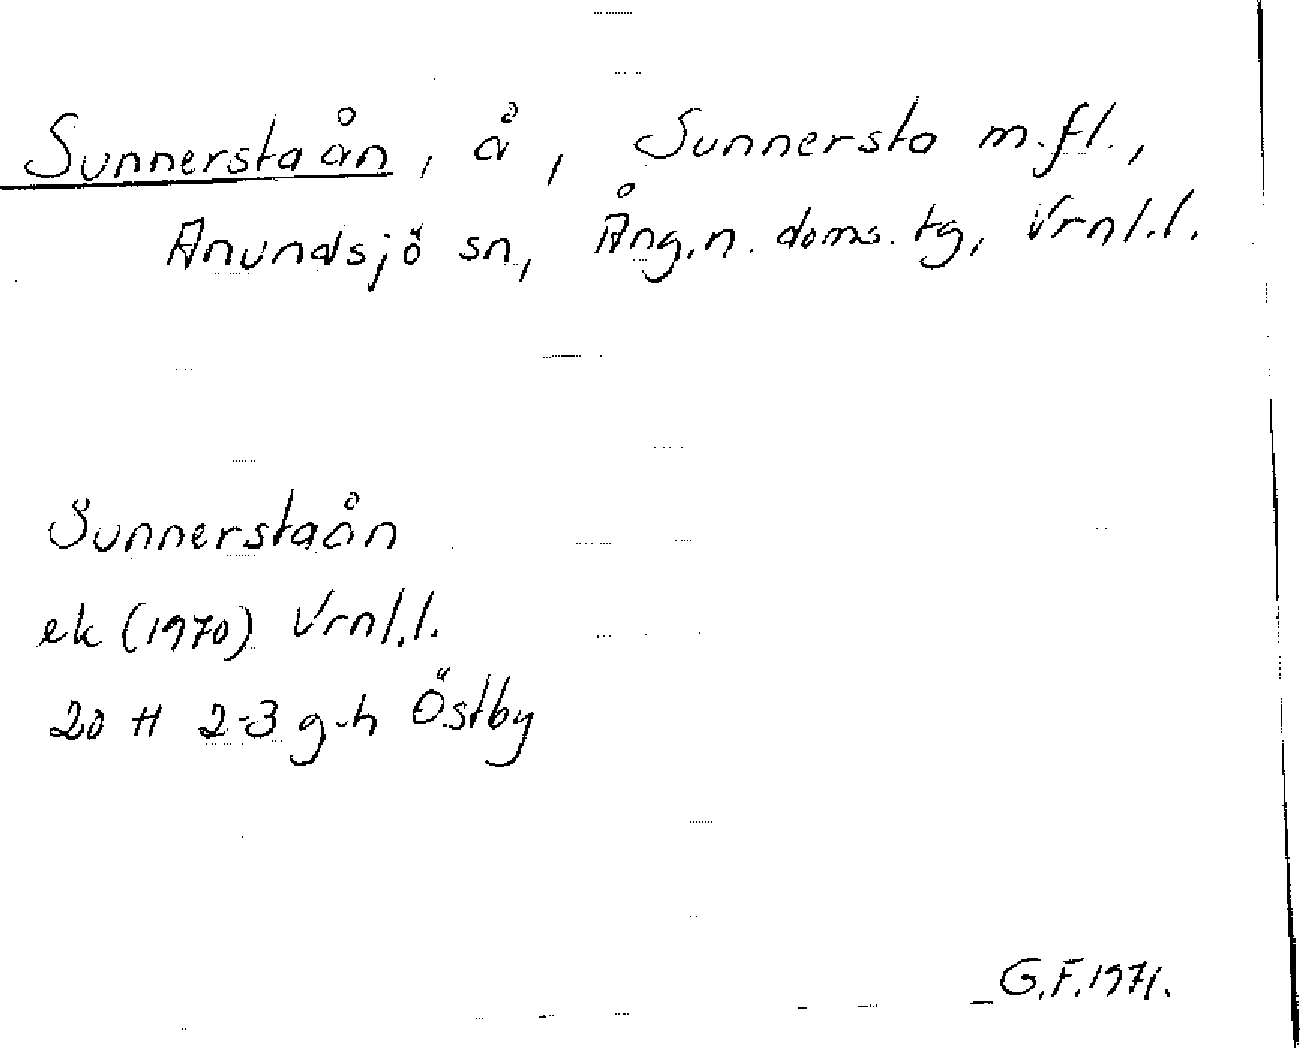 Sunnerstaån, å, Sunnersta m.fl.,
Anundsjö sn, Ång.n. doms. tg, Vrnl.l.
Sunnerstaån
ek (1970) Vrnl.l.
20 H 2-3 g-h Östby
G.F. 1971.